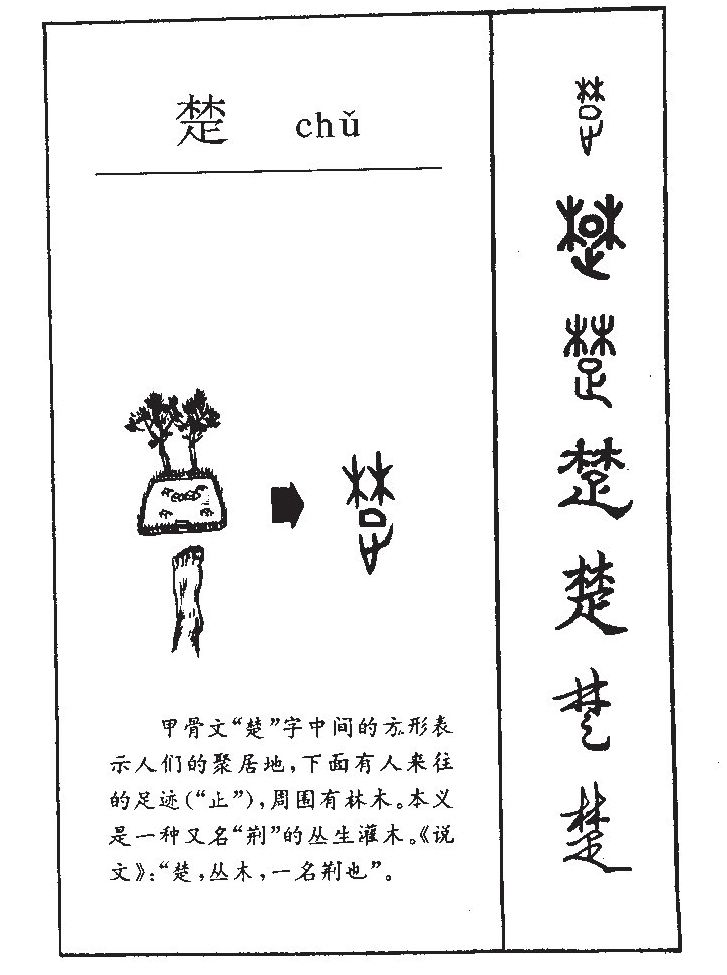 楚 chǔ
甲骨文“楚”字中间的方形表
示人们的聚居地，下面有人来往
的足迹（“止”），周围有林木。本义
是一种又名“荆”的丛生灌木。《说
文》：“楚，丛木，一名荆也”。
楚
楚
楚
楚
楚
楚
楚
楚